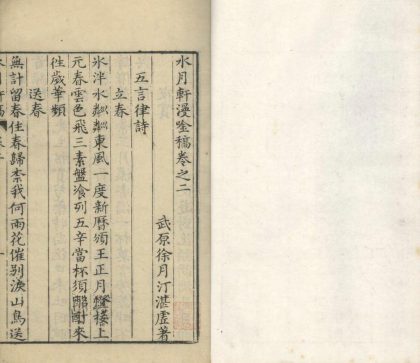 水月軒漫唫稿卷之二
武原徐月汀湛虛著
五言律詩
立春
氷泮水粼粼東風一度新曆頒王正月樓上
元春雲色飛三素盤飡列五辛當杯須酩酊來
徃歲華頻
送春
無計留春住春歸柰我何雨花催别淚山鳥送